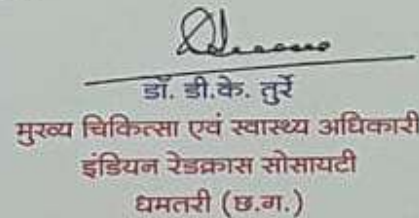 डॉ. डी.के. तुर्रे
मुख्य चिकित्सा एवं स्वास्थ्य अधिकारी
इंडियन रेडक्रास सोसायटी
धमतरी (छ.ग.)